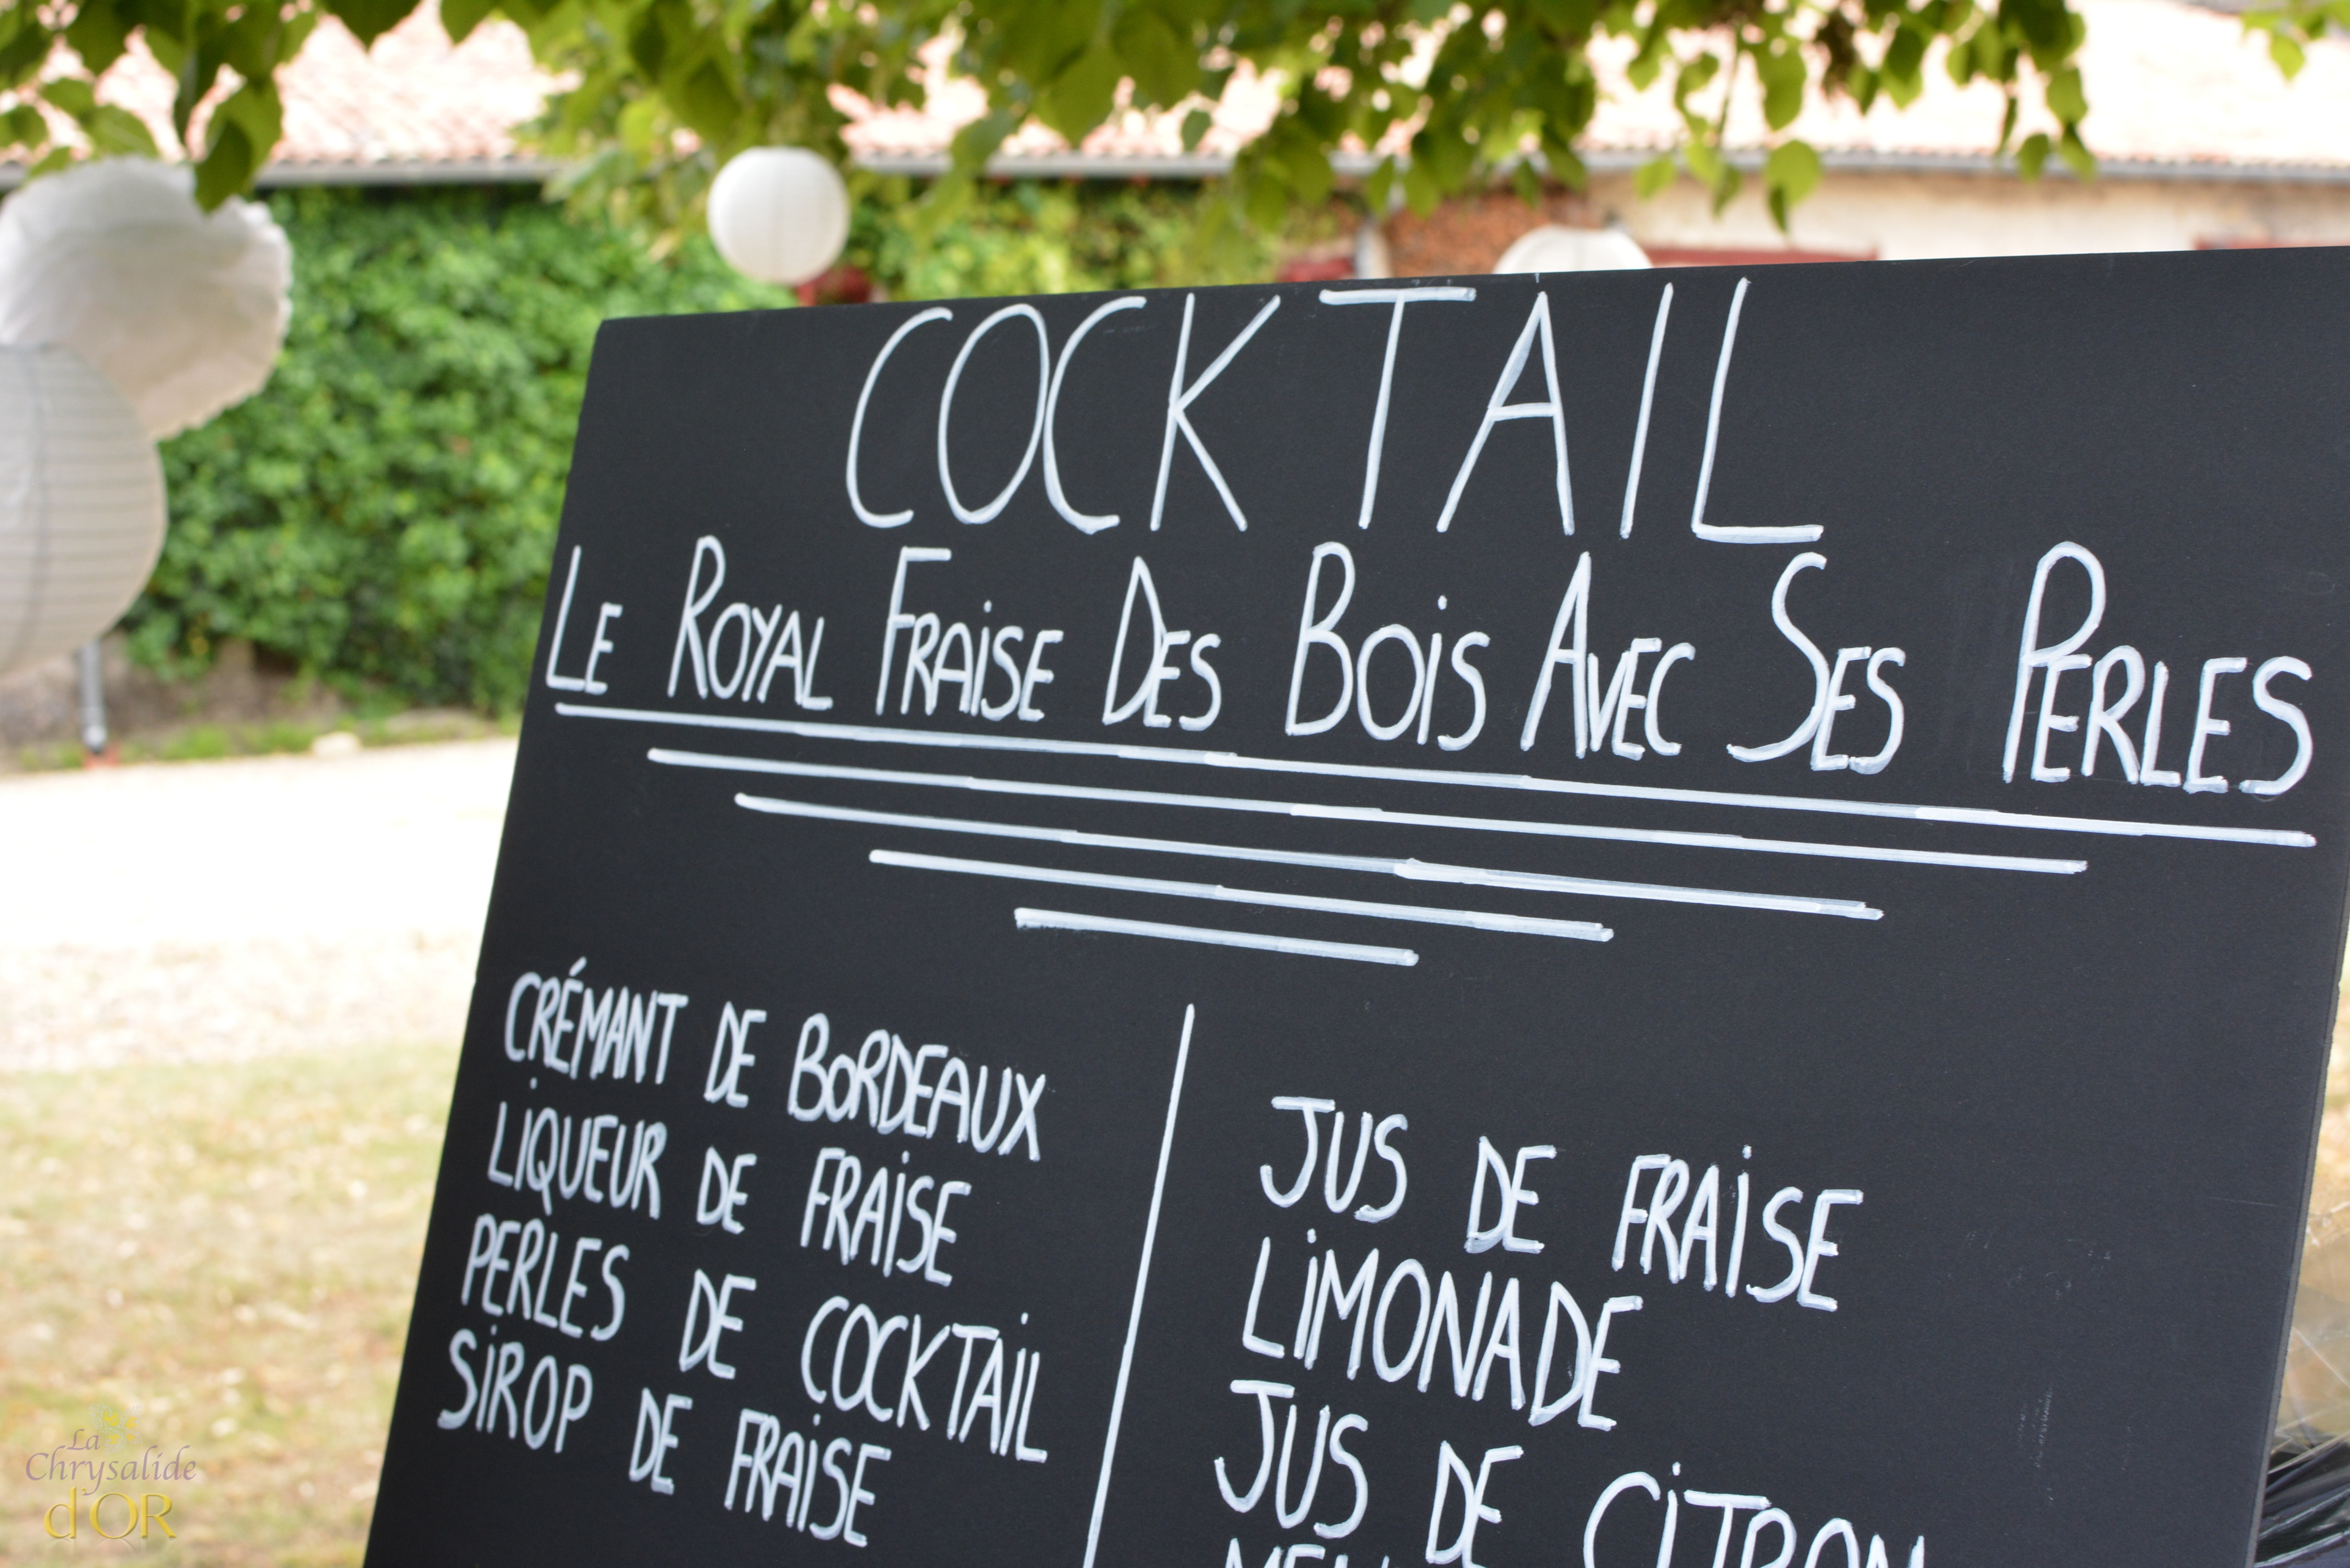 COCKTAIL
LE ROYAL FRAISE DES BOIS AVEC SES PERLES
CRÉMANT DE BORDEAUX
LIQUEUR DE FRAISE
PERLES DE COCKTAIL
SIROP DE FRAISE
JUS DE FRAISE
LIMONADE
JUS DE CITRON
La
Chrysalide
d'OR